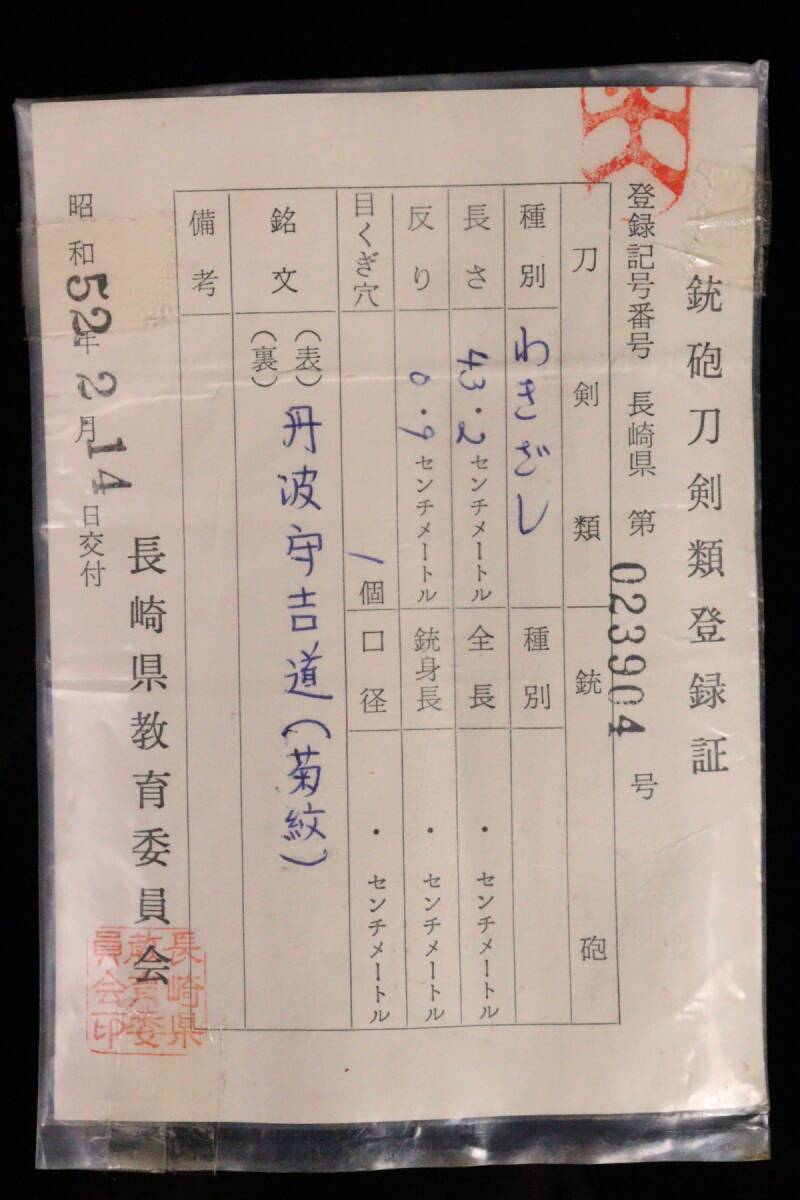 銃砲刀剣類登録証
登録記号番号 長崎県 第 023904 号
刀剣類
銃砲
種別 わきざし
種別
長さ 43.2センチメートル
全長 ・センチメートル
反り 0.9センチメートル
銃身長 ・センチメートル
目くぎ穴 1個
口径 ・センチメートル
銘文 (表) 丹波守吉道(菊紋)
(裏)
備考
長崎県教育委員会
昭和52年2月14日交付
長崎県
教育委
員会印